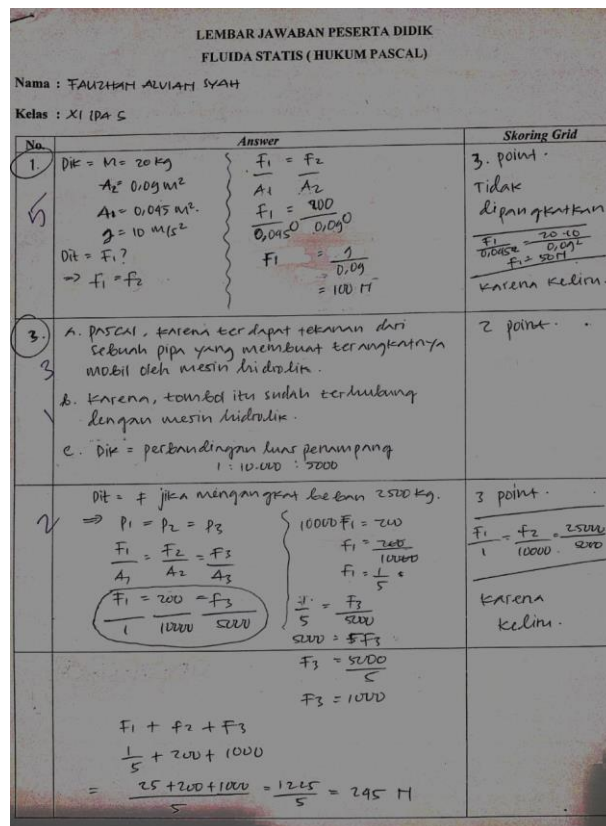 LEMBAR JAWABAN PESERTA DIDIK
FLUIDA STATIS ( HUKUM PASCAL)
Nama : FAUZHAN ALVIAN SYAH
Kelas : XI IPA 5
No. Answer Skoring Grid
1.
5
Dik = M = 20 kg
A2 = 0,09 m²
A1 = 0,045 m².
g = 10 m/s²
Dit = F1?
=> F1 = F2
F1 = F2
A1 A2
F1 = 200
0,045 0,09
F1 = 9
0,09
= 100 N
3. point.
Tidak
dipangkatkan
F1 = 20.10
0,045² 0,09²
F1 = 50 N
Karena Keliru.
3.
3
A. Pascal, karena terdapat tekanan dari
sebuah pipa yang membuat terangkatnya
mobil oleh mesin hidrolik.
b. Karena, tombol itu sudah terhubung
dengan mesin hidrolik.
c. Dik = perbandingan luas penampang
1 : 10.000 : 5000
2 point.
2
Dit = F jika mengangkat beban 2500 kg.
=> P1 = P2 = P3
F1 = F2 = F3
A1 A2 A3
F1 = 200 = F3
1 10000 5000
10000 F1 = 200
F1 = 200
10000
F1 = 1
5
1 = F3
5 5000
5000 = 5F3
F3 = 5000
5
F3 = 1000
3 point.
F1 = F2 = 25000
1 10000 5000
Karena
Keliru.
F1 + F2 + F3
1 + 200 + 1000
5
= 25 + 200 + 1000 = 1225 = 245 N
5 5